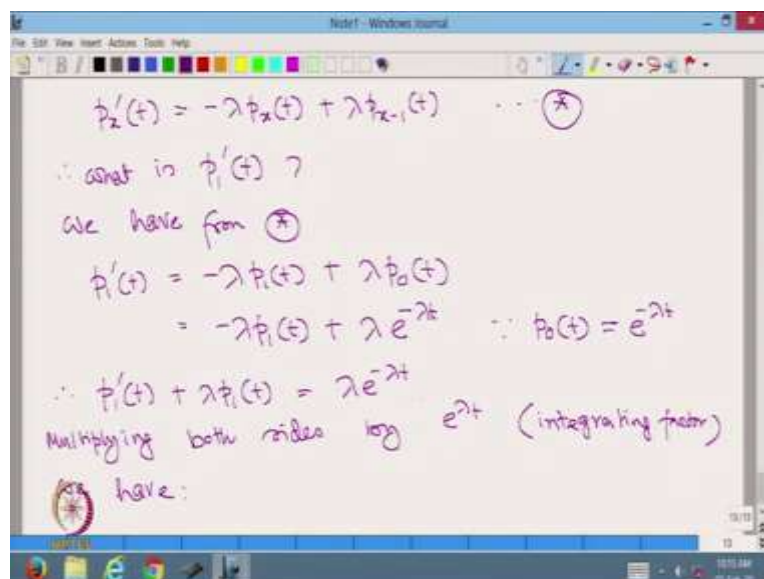 Note1 - Windows Journal
File Edit View Insert Actions Tools Help
p_x'(t) = -λp_x(t) + λp_{x-1}(t) ... (*)
∴ what is p_1'(t) ?
We have from (*)
p_1'(t) = -λp_1(t) + λp_0(t)
= -λp_1(t) + λe^{-λt} ∵ p_0(t) = e^{-λt}
∴ p_1'(t) + λp_1(t) = λe^{-λt}
Multiplying both sides by e^{λt} (integrating factor)
We have:
NPTEL
13/13
13
10:15 AM